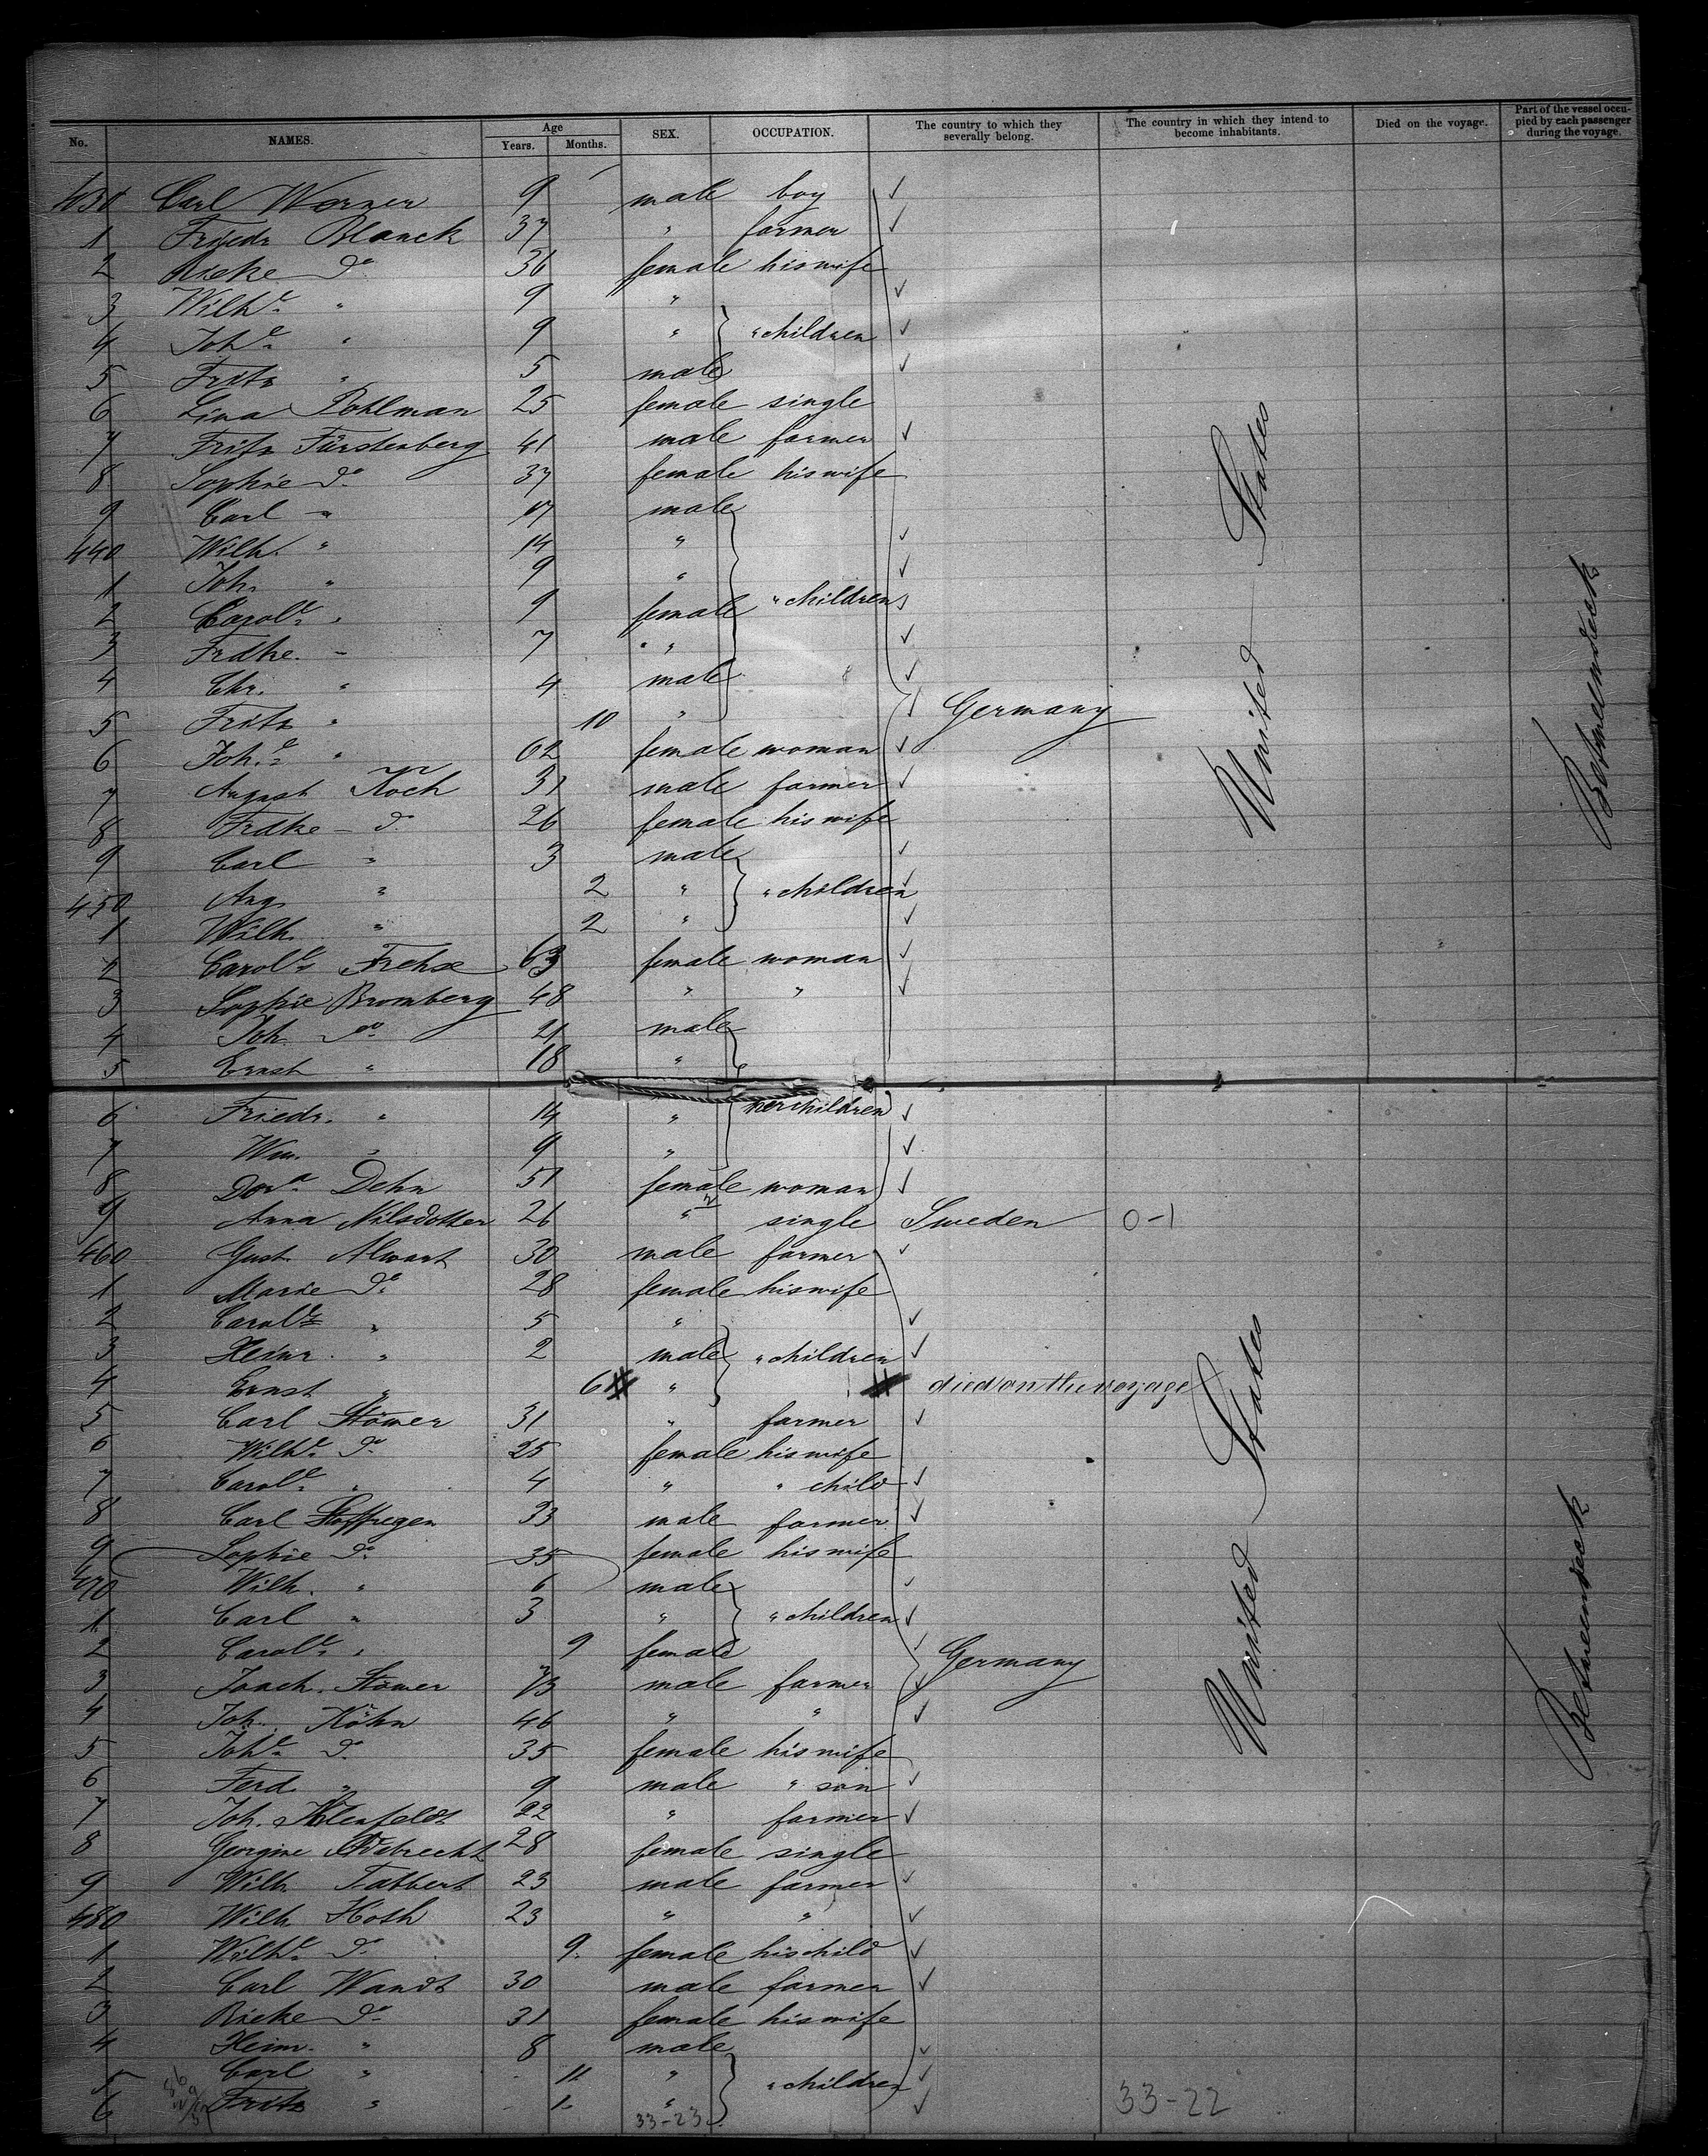 No. NAMES. Age Years. Months. SEX. OCCUPATION. The country to which they severally belong. The country in which they intend to become inhabitants. Died on the voyage. Part of the vessel occupied by each passenger during the voyage.
430 Carl Werner 9 male boy
1 Friedr Blanck 37 " farmer
2 Rieke do 36 female his wife
3 Wilhe " 9 "
4 Johe " 9 " " children
5 Fritz " 5 male
6 Lina Pohlman 25 female single
7 Fritz Fürstenberg 41 male farmer
8 Sophie do 37 female his wife
9 Carl " 17 male
440 Wilh. " 14 "
1 Joh. " 9 "
2 Carole " 9 female " children
3 Frdke. " 7 "
4 Chr. " 4 male
5 Fritz " 10 " Germany
6 Johe " 62 female woman
7 August Koch 31 male farmer
8 Frdke do 26 female his wife
9 Carl " 3 male
450 Aug. " 2 " " children
1 Wilh. " 2 "
2 Carole 63 female woman
3 Sophie Bromberg 48 " "
4 Joh. do 21 male
5 Ernst " 18 "
6 Friedr. " 14 " her children
7 Wm. " 9 "
8 Dora Dehn 51 female woman
9 Anna Nilsdotter 26 " single Sweden 0-1
460 Gust. Alwart 30 male farmer
1 Marie do 28 female his wife
2 Carole " 5 "
3 Heinr. " 2 male " children
4 Ernst " 6 " died on the voyage
5 Carl Stömer 31 " farmer
6 Wilhe do 25 female his wife
7 Carole " 4 " " child
8 Carl Stoffregen 33 male farmer
9 Sophie do 35 female his wife
470 Wilh. " 6 male
1 Carl " 3 " " children
2 Carole " 9 female Germany
3 Joach. Stömer 73 male farmer
4 Joh. Köhn 46 " "
5 Johe do 35 female his wife
6 Ferd. " 9 male " son
7 Joh. 22 " farmer
8 Georgine 28 female single
9 Wilh. 23 male farmer
480 Wilh. 23 " "
1 Wilhe do 9 female his child
2 Carl Wandt 30 male farmer
3 Rieke do 31 female his wife
4 Heinr. " 8 male
5 Carl " 11 " " children
6 Fritz " 1 "
33-23 33-22
United States
United States
Betweendeck
Betweendeck